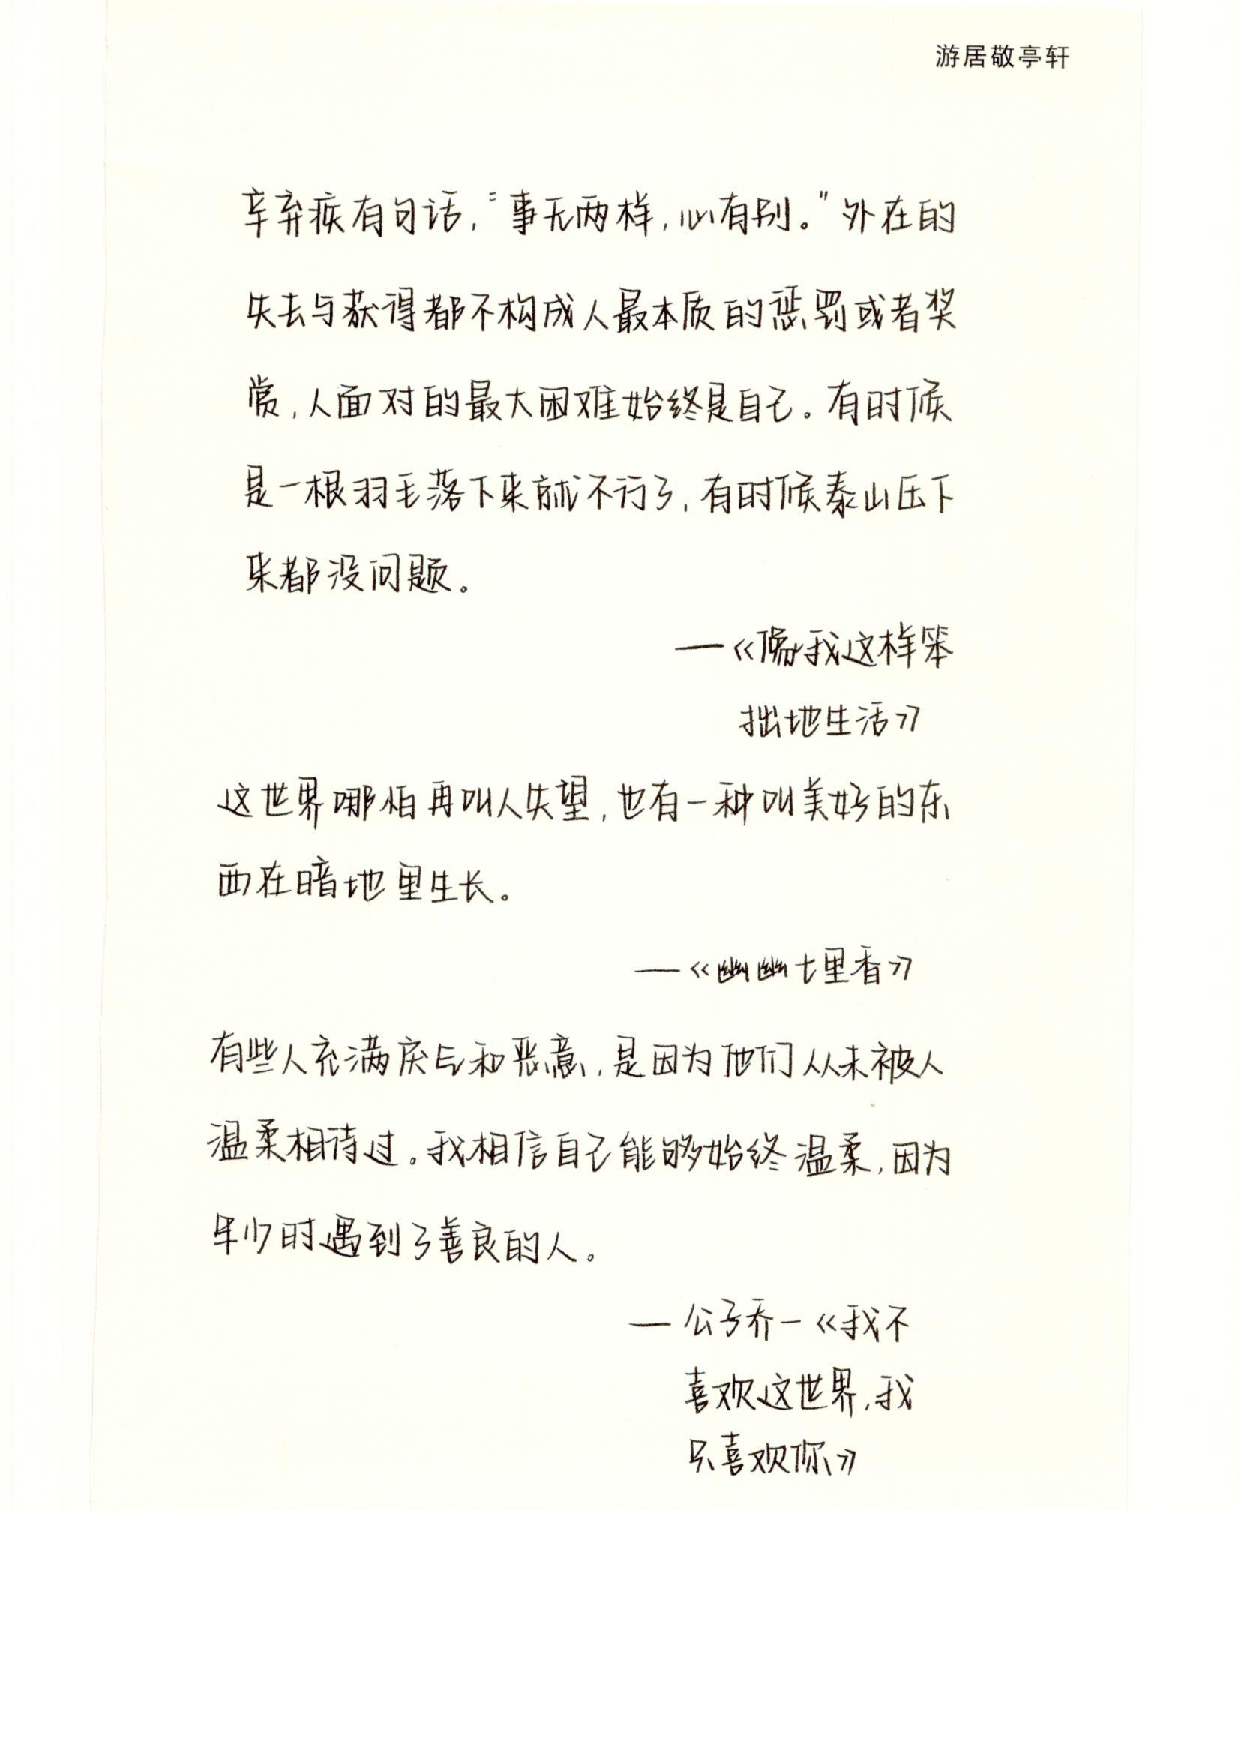 游居敬亭轩
辛弃疾有句话，“事无两样，心有别。”外在的
失去与获得都不构成人最本质的惩罚或者奖
赏，人面对的最大困难始终是自己。有时候
是一根羽毛落下来就不行了，有时候泰山压下
来都没问题。
—《像我这样笨
拙地生活》
这世界哪怕再叫人失望，也有一种叫美好的东
西在暗地里生长。
—《幽幽埋香》
有些人充满戾气和恶意，是因为他们从未被人
温柔相待过。我相信自己能够始终温柔，因为
年少时遇到了善良的人。
— 公子乔一《我不
喜欢这世界，我
只喜欢你》